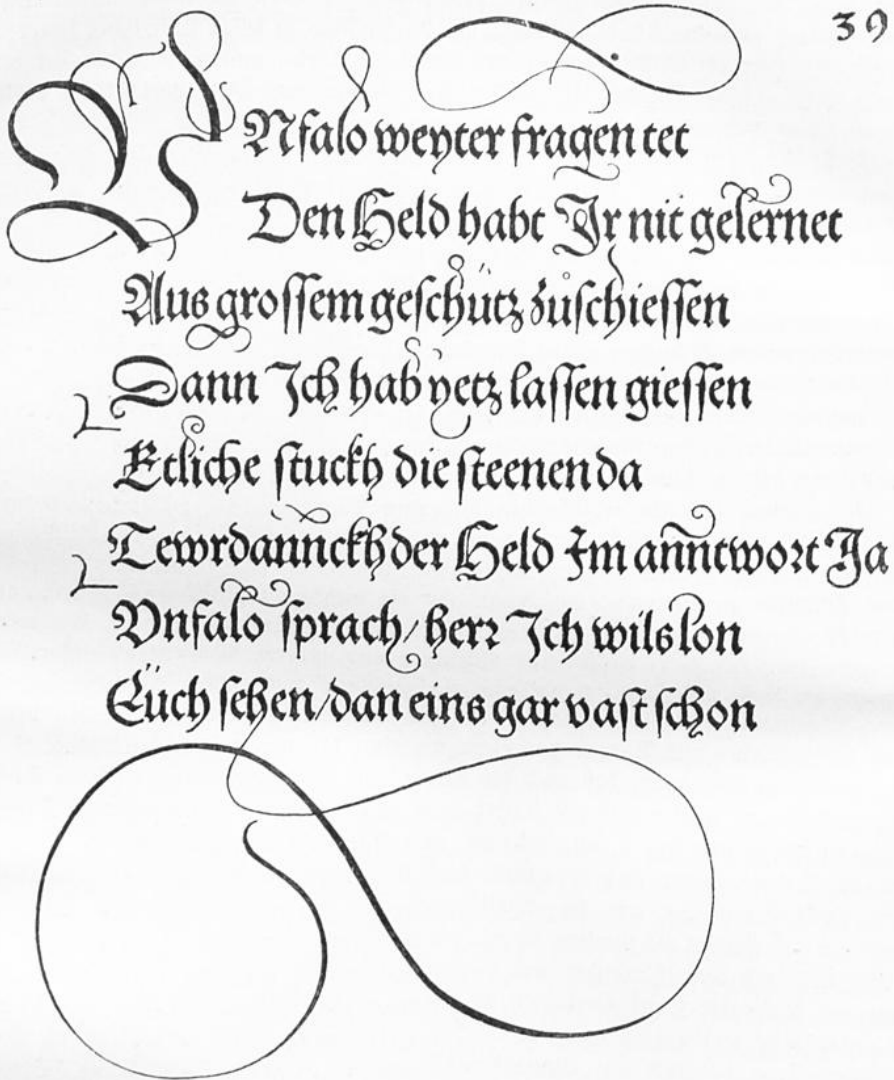 39
VNfalo weyter fragen tet
Den Held habt Ir nit gelernet
Aus grossem geschütz zůschiessen
Dann Ich hab yetz lassen giessen
Etliche stuckh die steenen da
Tewrdannckh der Held Im anntwort Ja
Vnfalo sprach / herr Ich wils lon
Eüch sehen / dan eins gar vast schon